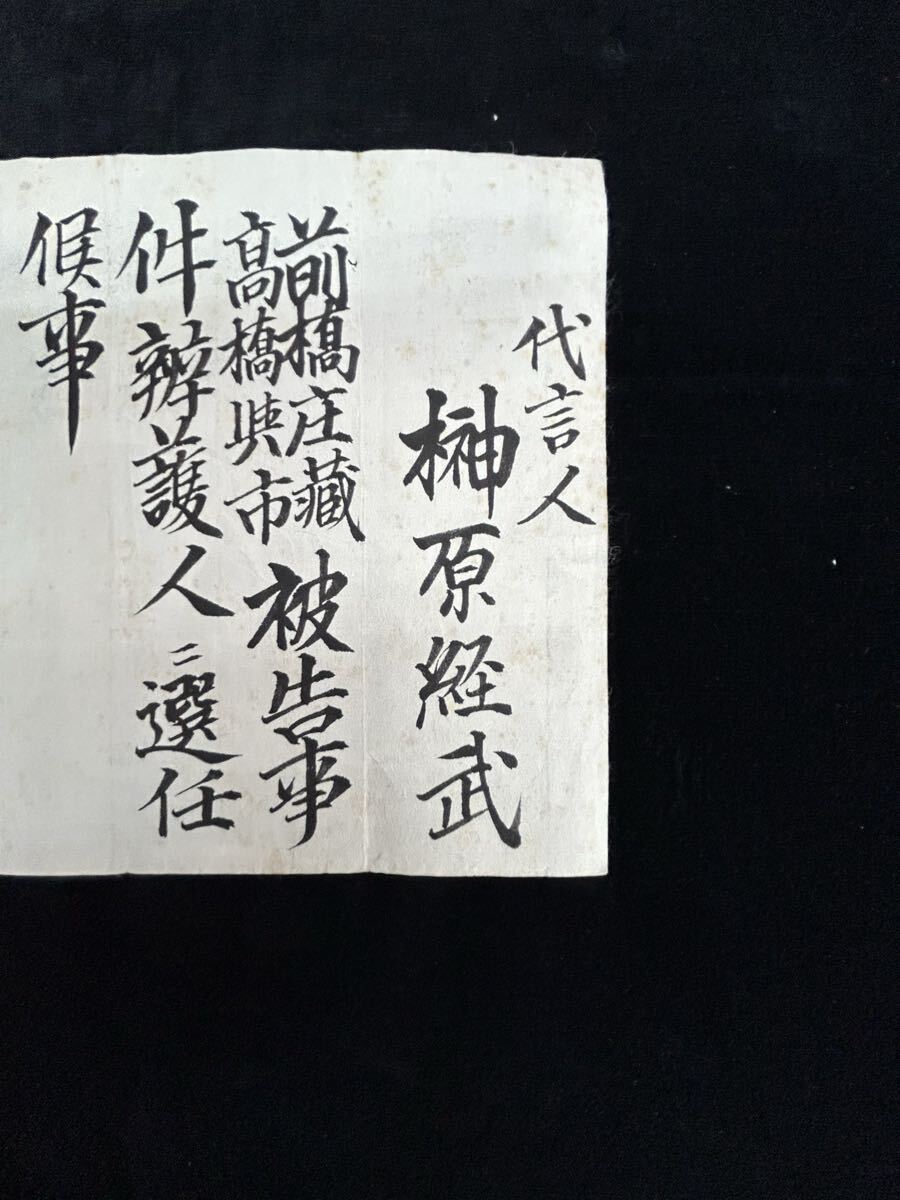 代言人
榊原経武
前橋庄藏
高橋㒷市
被告事
件辨護人ニ選任
候事